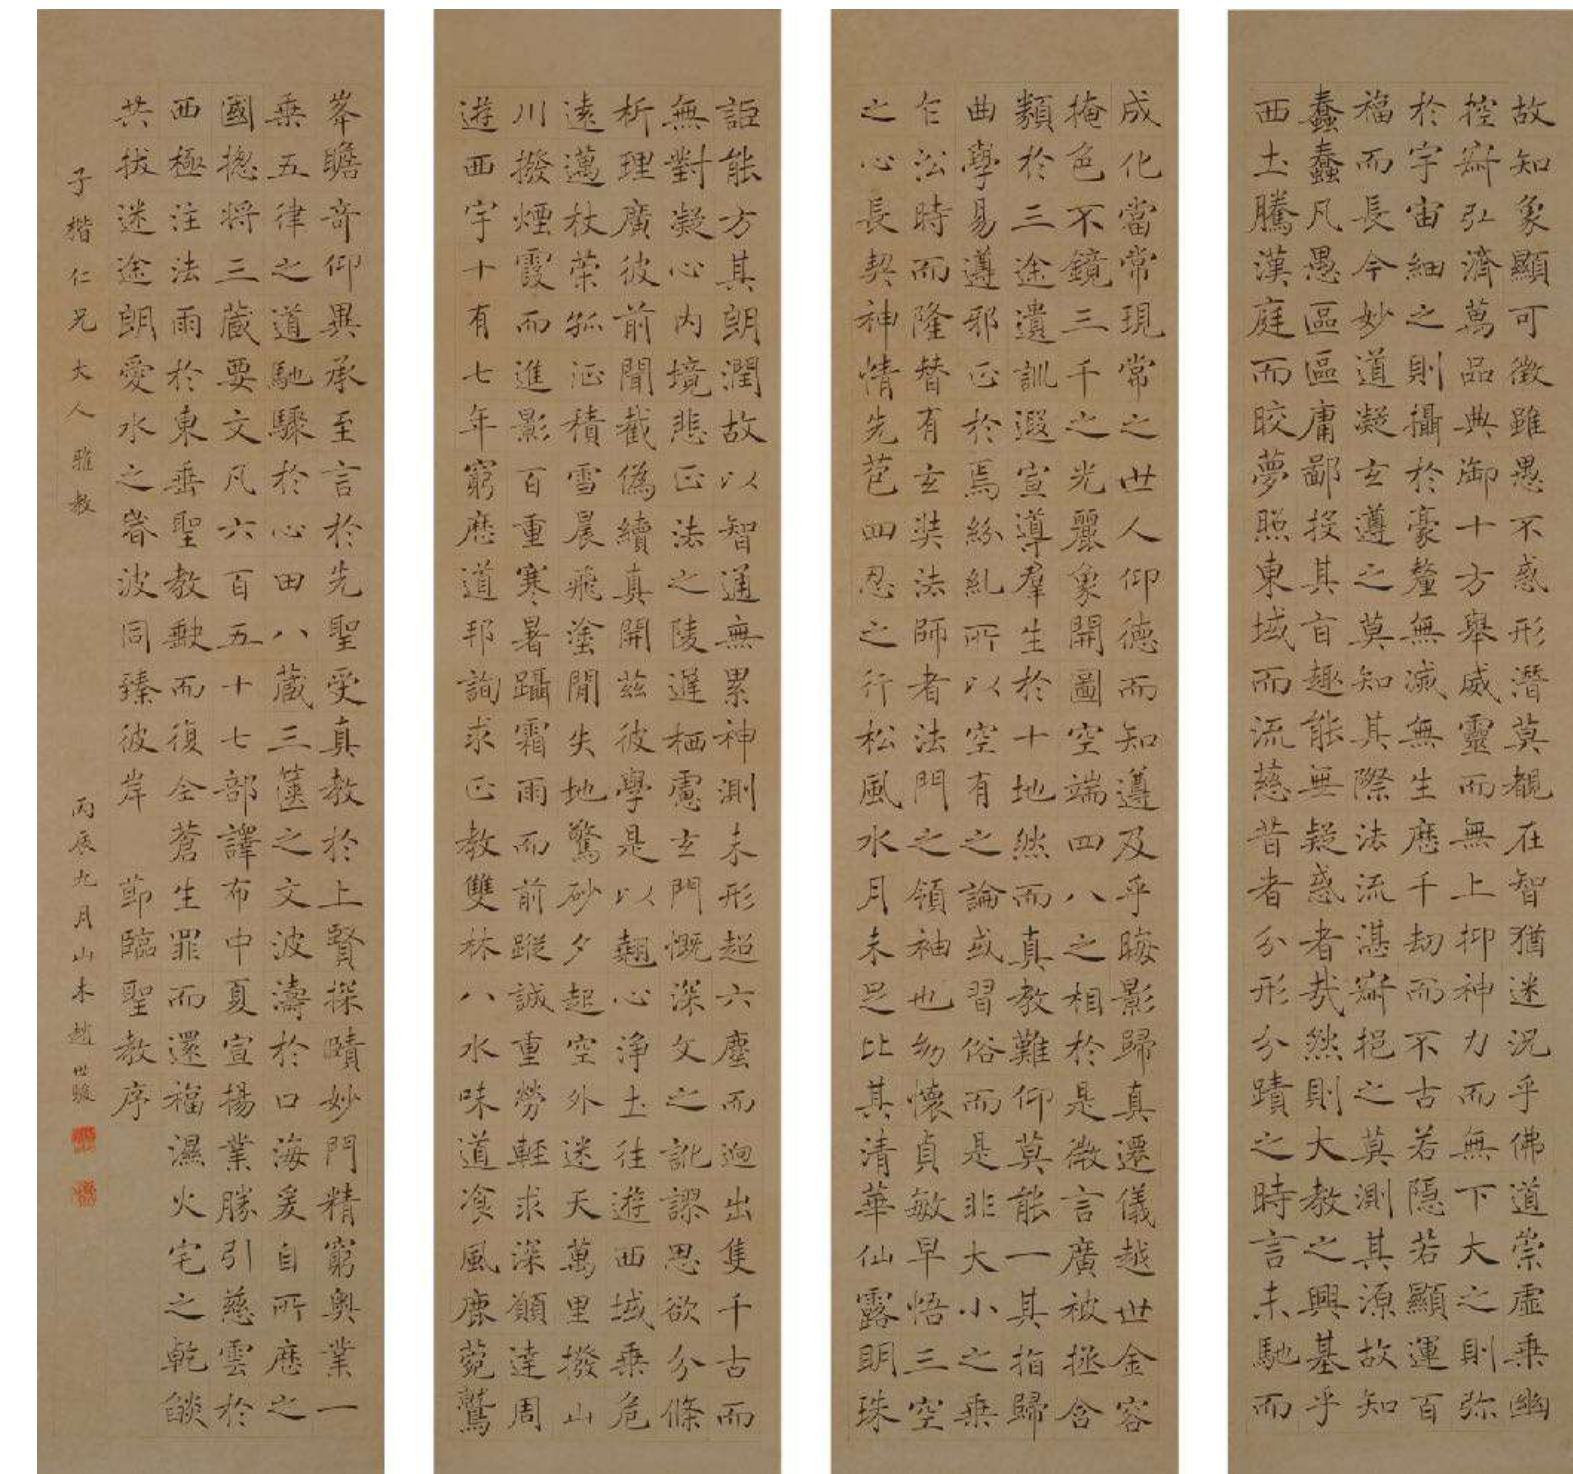 故知象顯可徵雖愚不惑形潛莫覩在智猶迷況乎佛道崇虛乘幽
控寂弘濟萬品典御十方舉威靈而無上抑神力而無下大之則弥
於宇宙細之則攝於豪釐無滅無生歷千劫而不古若隱若顯運百
福而長今妙道凝玄遵之莫知其際法流湛寂挹之莫測其源故知
蠢蠢凡愚區區庸鄙投其旨趣能無疑惑者哉然則大教之興基乎
西土騰漢庭而皎夢照東域而流慈昔者分形分蹟之時言未馳而
成化當常現常之世人仰德而知遵及乎晦影歸真遷儀越世金容
掩色不鏡三千之光麗象開圖空端四八之相於是微言廣被拯含
類於三途遺訓遐宣導羣生於十地然而真教難仰莫能一其指歸
曲學易遵邪正於焉紛糺所以空有之論或習俗而是非大小之乘
乍㳂時而隆替有玄奘法師者法門之領袖也幼懷貞敏早悟三空
之心長契神情先苞四忍之行松風水月未足比其清華仙露明珠
詎能方其朗潤故以智通無累神測未形超六塵而迥出隻千古而
無對凝心內境悲正法之陵遲栖慮玄門慨深文之訛謬思欲分條
析理廣彼前聞截偽續真開茲彼學是以翹心淨土往遊西域乘危
遠邁杖策孤征積雪晨飛塗閒失地驚砂夕起空外迷天萬里撥山
川撥煙霞而進影百重寒暑躡霜雨而前蹤誠重勞輕求深願達周
遊西宇十有七年窮歷道邦詢求正教雙林八水味道飡風鹿菀鷲
峯瞻奇仰異承至言於先聖受真教於上賢探賾妙門精窮奧業一
乘五律之道馳驟於心田八藏三篋之文波濤於口海爰自所歷之
國揔將三藏要文凡六百五十七部譯布中夏宣揚業勝引慈雲於
西極注法雨於東垂聖教缺而復全蒼生罪而還福濕火宅之乾燄
共拔迷途朗愛水之昬波同臻彼岸 節臨聖教序
子楷仁兄大人雅教 丙辰九月山木趙世駿